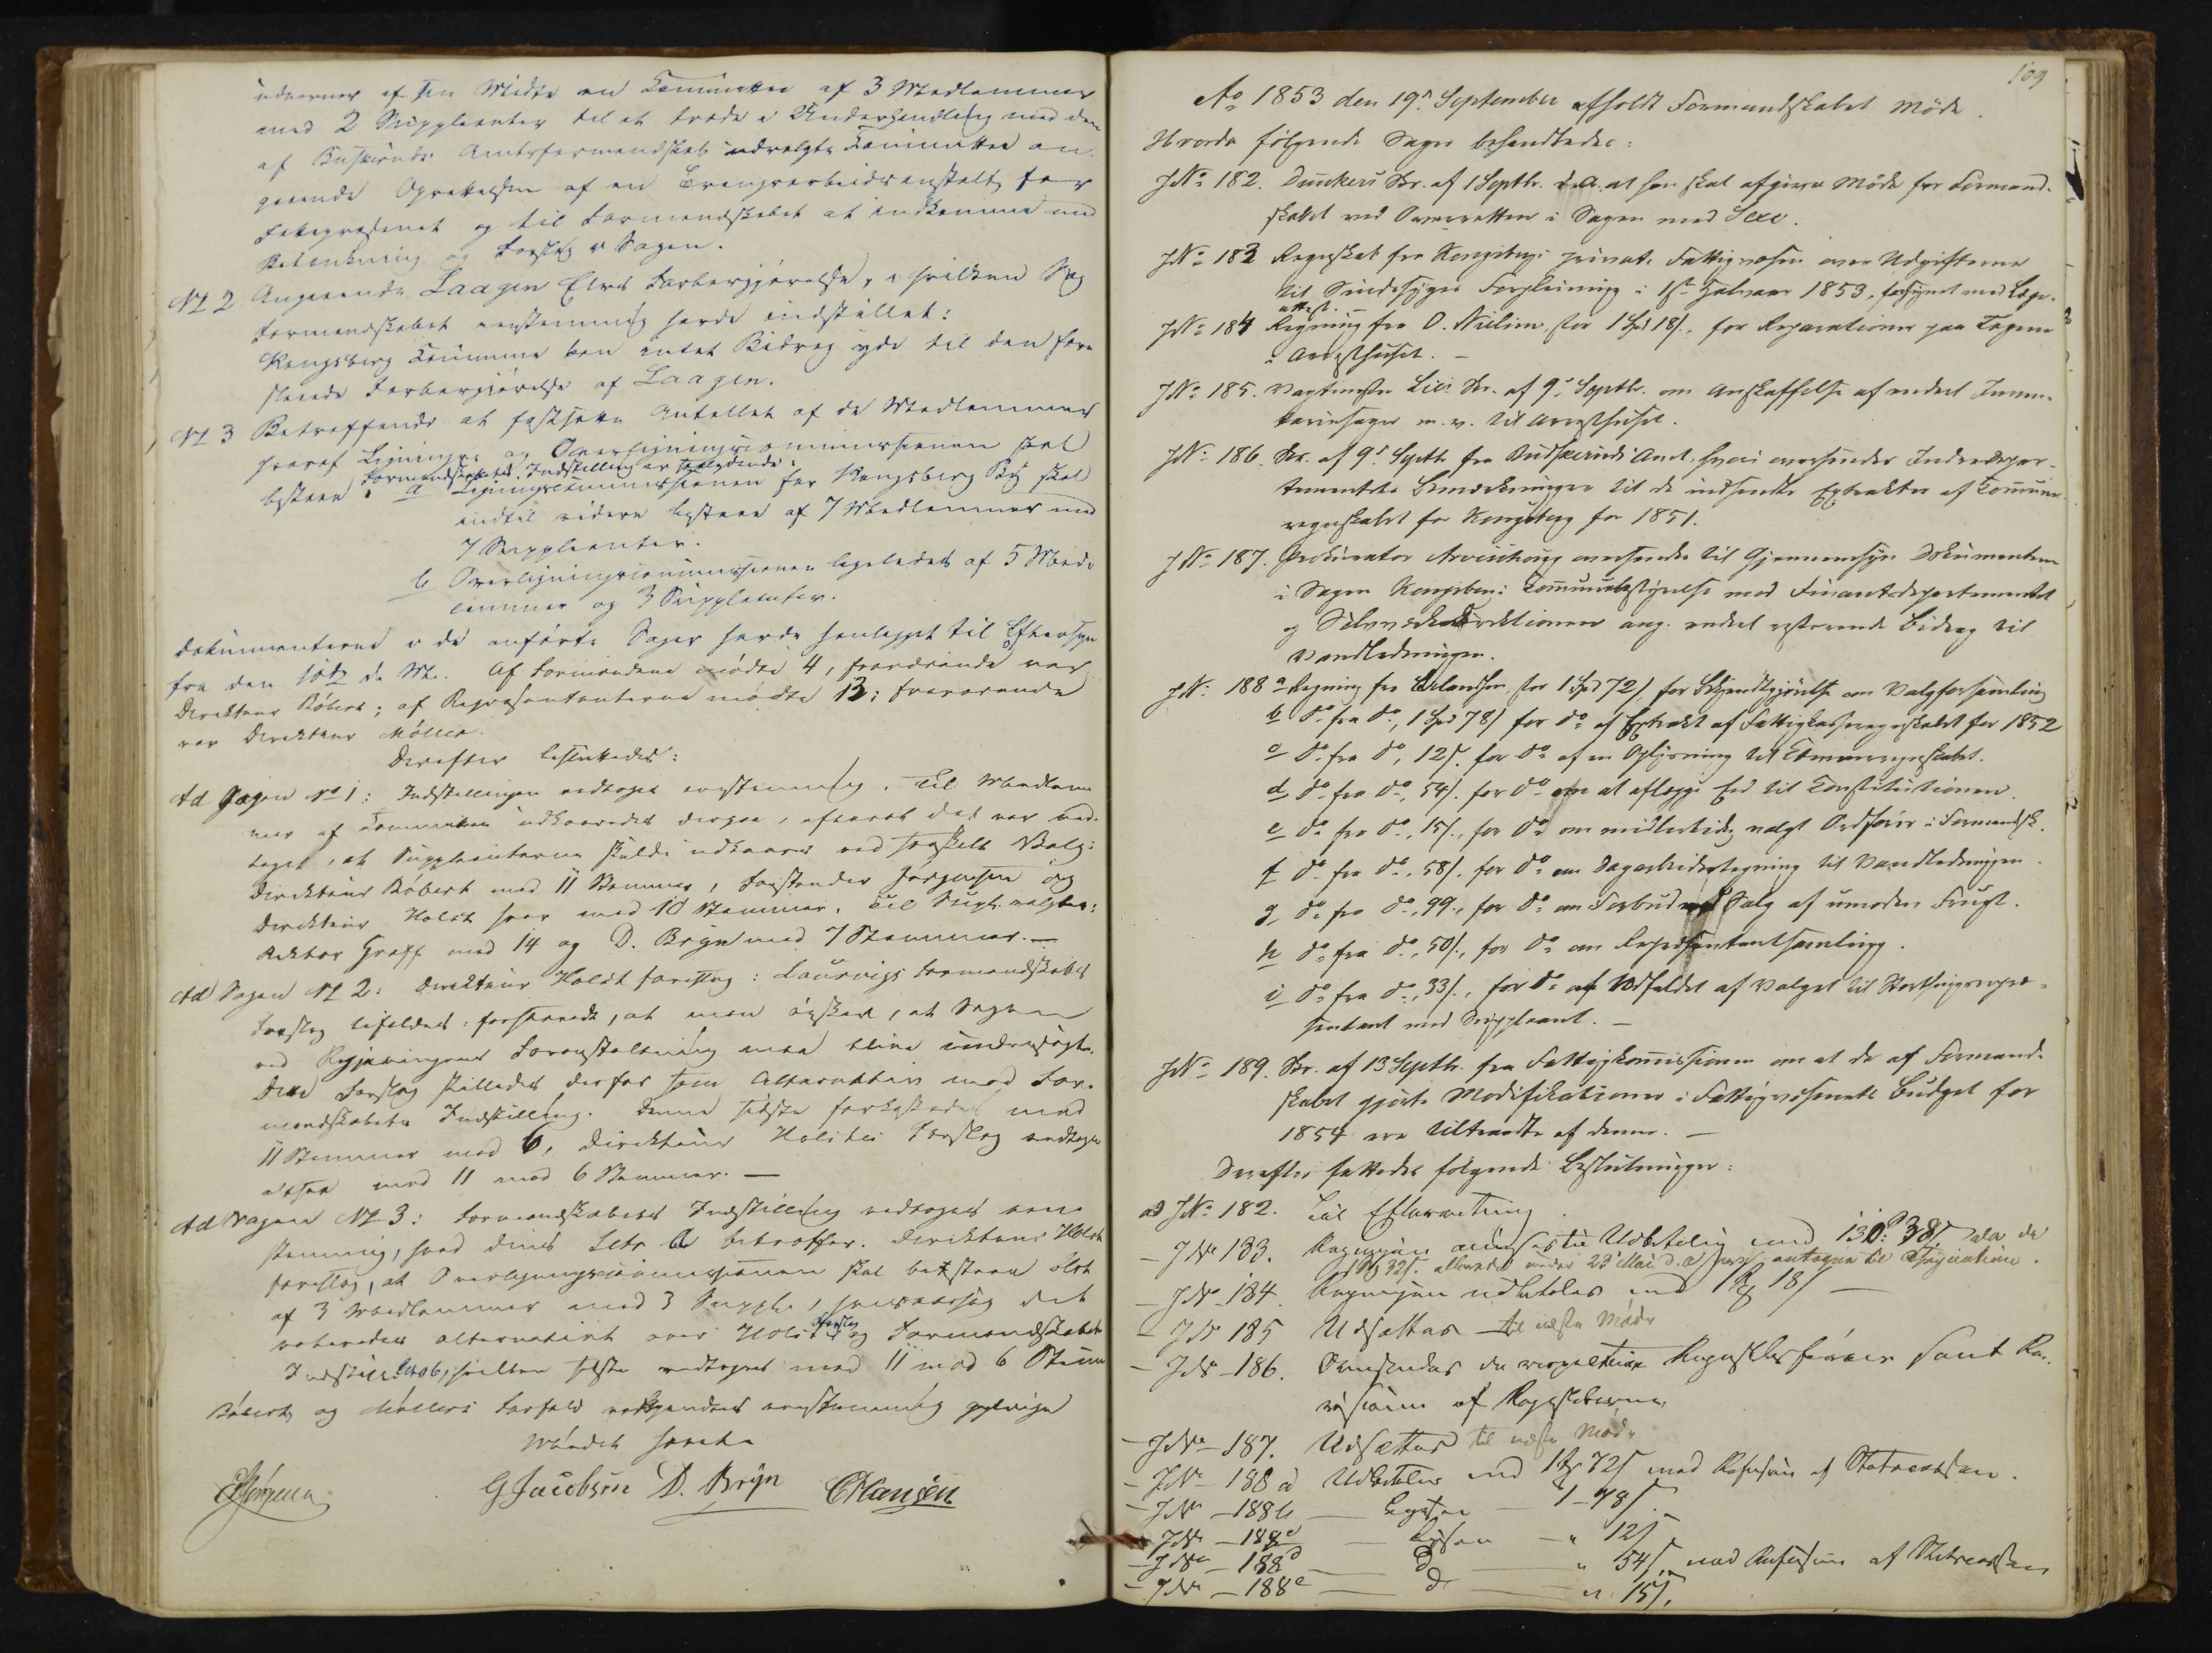 udnævner af sin Midte en Committee af 3 Medlemmer
med 2 Suppleanter til at træde i Underhandling med den
af Buskeruds Amtsformandskab udvalgte Committee an-
gaaende Oprettelsen af en Tvangsarbeidsanstalt for
og til Formandskabet at indkomme med
Betænkning og Forslag i Sagen.
No 2 Angaaende Laagen Elvs Farbargjørelse, i hvilken Sag
Formandskabet eenstemmig havde indstillet:
Kongsberg Commune kan intet Bidrag yde til den fore-
slaaede Farbargjørelse af Laagen.
No 3 Betreffende at fastsætte Antallet af de Medlemmer
hvoraf Lignings og Overligningscommissionen skal
bestaae. Formandskabets Indstilling er saalydende:
a Ligningscommissionen for Kongsberg By skal
indtil videre bestaae af 7 Medlemmer med
7 Suppleanter.
b Overligningscommissionen ligeledes af 5 Med-
lemmer og 3 Suppleanter.
Dokumenterne i de anførte Sager havde henligget til Eftersyn
fra den 10de d. M. Af Formændene mødte 4, fraværende var
Direkteur Böbert; af Repræsentanterne mødte 13; fraværende
var Direkteur Möller.
Derefter besluttedes:
Ad Sagen No 1: Indstillingen vedtoges eenstemmig. Til Medlem-
mer af Committeen udkaaredes derpaa, efterat det var ved-
taget, at Suppleanterne skulde udkaares ved særskilt Valg:
Direkteur Böbert med 11 Stemmer, Forstander Jørgensen og
Direkteur Holst hver med 10 Stemmer. Til Suppl. valgtes:
Rektor Graff med 14 og D. Bryn med 7 Stemmer. —
Ad Sagen No 2: Direkteur Holst foreslog: Laurvigs Formandskabs
Forslag bifaldes forsaavidt, at man ønsker, at Sagen
ved Regjeringens Foranstaltning maa blive undersøgt.
Dette Forslag stilledes derfor som Alternativ mod For-
mandskabets Indstilling. Denne sidste forkastedes med
11 Stemmer mod 6, Direkteur Holstes Forslag vedtoges
altsaa med 11 mod 6 Stemmer. —
Ad Sagen No 3: Formandskabets Indstilling vedtoges een-
stemmig, hvad dens Litr a betræffer. Direkteur Holst
foreslog, at Overligningscommissionen skal bestaae blot
af 3 Medlemmer med 3 Suppl.,
voteredes alternativt over Holsts Forslag og Formandskabets
Indstill. Litr b, hvilken sidste vedtoges med 11 mod 6 Stemmer
Böberts og Möllers Forfald erkjendtes eenstemmig gyldige
Mödet hævet
Jørgensen G Jacobsen D. Bryn CHansen
109
Ao 1853 den 19d September afholdt Formandskabet Møde.
Hvorda følgende Sager behandledes:
JNo 182. Dunkers Skr. af 1 Septbr. d. A. at han skal afgive Møde for Formand-
skabet ved Overretten i Sagen mod
JNo 183 Regnskab fra Kongsbergs private Fattigvæsen over Udgifterne
til Sindssyges Forpleining i 1ste Halvaar 1853, forsynet med Læge-
attest. —
JNo 184 Regning fra O. Nielsen, stor 1 Spd 18 s, for Reparationer paa Tagene
i Arresthuset. —
JNo 185. Vagtmester Lies Skr. af 9d Septbr. om Anskaffelse af endeel Inven-
tariesager m. v. til Arresthuset.
JNo 186. Skr. af 9d Septb. fra Buskeruds Amt, hvori oversendes Indredepar-
tementets Bemærkninger til de indsendte Extrakter af Commune-
regnskabet for Kongsberg for 1851.
JNo 187. Prokurator Arveschoug oversender til Gjennemsyn Dokumenterne
i Sagen Kongsbergs Communebestyrelse mod Finantsdepartementet
og Sølvværksdirektionen ang. endeel resterende Bidrag til
Vandledningen.
JNo 188 a Regning fra Erlandsen, stor 1 Spd 72 s for Bekjendtgjørelse om Valgforsamling
b do fra do, 1 Spd 78 s for do af Extrakt af Fattigkasseregnskabet for 1852
c do fra do, 12 s. for do af en Oplysning til Communeregnskabet.
d do fra do, 54 s. for do om at aflægge Eed til Constitutionen.
e do fra do, 15 s., for do om midlertidig valgt Ordfører i Formandsk.
f do fra do, 58 s. for do om Dagarbeidstegning til Vandledningen.
g do fra do, 99., for do om Forbud mod Salg af umoden Frugt.
h do fra do, 50 s., for do om Repræsentantsamling.
i do fra do, 33 s., for do af Udfaldet af Valget til Storthingsrepræ-
sentant med Suppleant. —
JNo 189. Skr. af 13 Septb. fra Fattigkommissionen om at de af Formand-
skabet gjorte Modifikationer i Fattigvæsenets Budget for
1854 ere tiltraadte af denne. —
Derefter fattedes følgende Beslutninger:
ad JNo 182. Til Efterretning.
— JNo 183. Regningen anvises til Udbetaling med
32 s. allerede under 23 Mai d. A. antagen til Assignation.
— JNo 184. Regningen udbetales med 1 Spd 18 s —
— JNo 185 Udsættes til næste Møde
— JNo 186. Oversendes de respektive Regnskabsførere samt Re-
visionen af Regnskaberne.
— JNo 187. Udsættes til næste Møde
— JNo 188 a Udbetales med 1 Spd 72 s med Refusion af Statskassen.
— JNo 188 b — Ligesaa — 1 - 78 s.
— JNo 188 c — Ligesaa — " 12 s
— JNo 188 d — do — " 54 s med Refusion af Statskassen
— JNo 188 e — do — " 15 s.